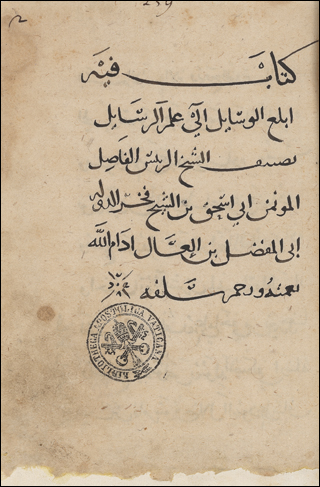 2
259
كتاب فيه
ابلغ الوسايل الي علم الرسايل
تصنيف الشيخ الريس الفاضل
الموتمن ابي اسحق بن الشيخ فخر الدوله
ابي المفضل بن العسال ادام الله
نعمته ورحم سلفه
BIBLIOTHECA APOSTOLICA VATICANA